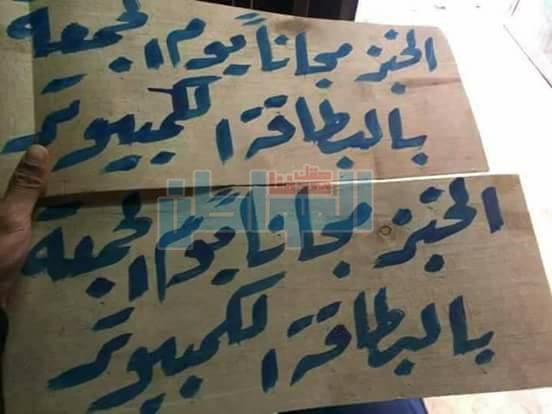 الخبز مجاناً يوم الجمعة
بالبطاقة الكمبيوتر
الخبز مجاناً يوم الجمعة
بالبطاقة الكمبيوتر